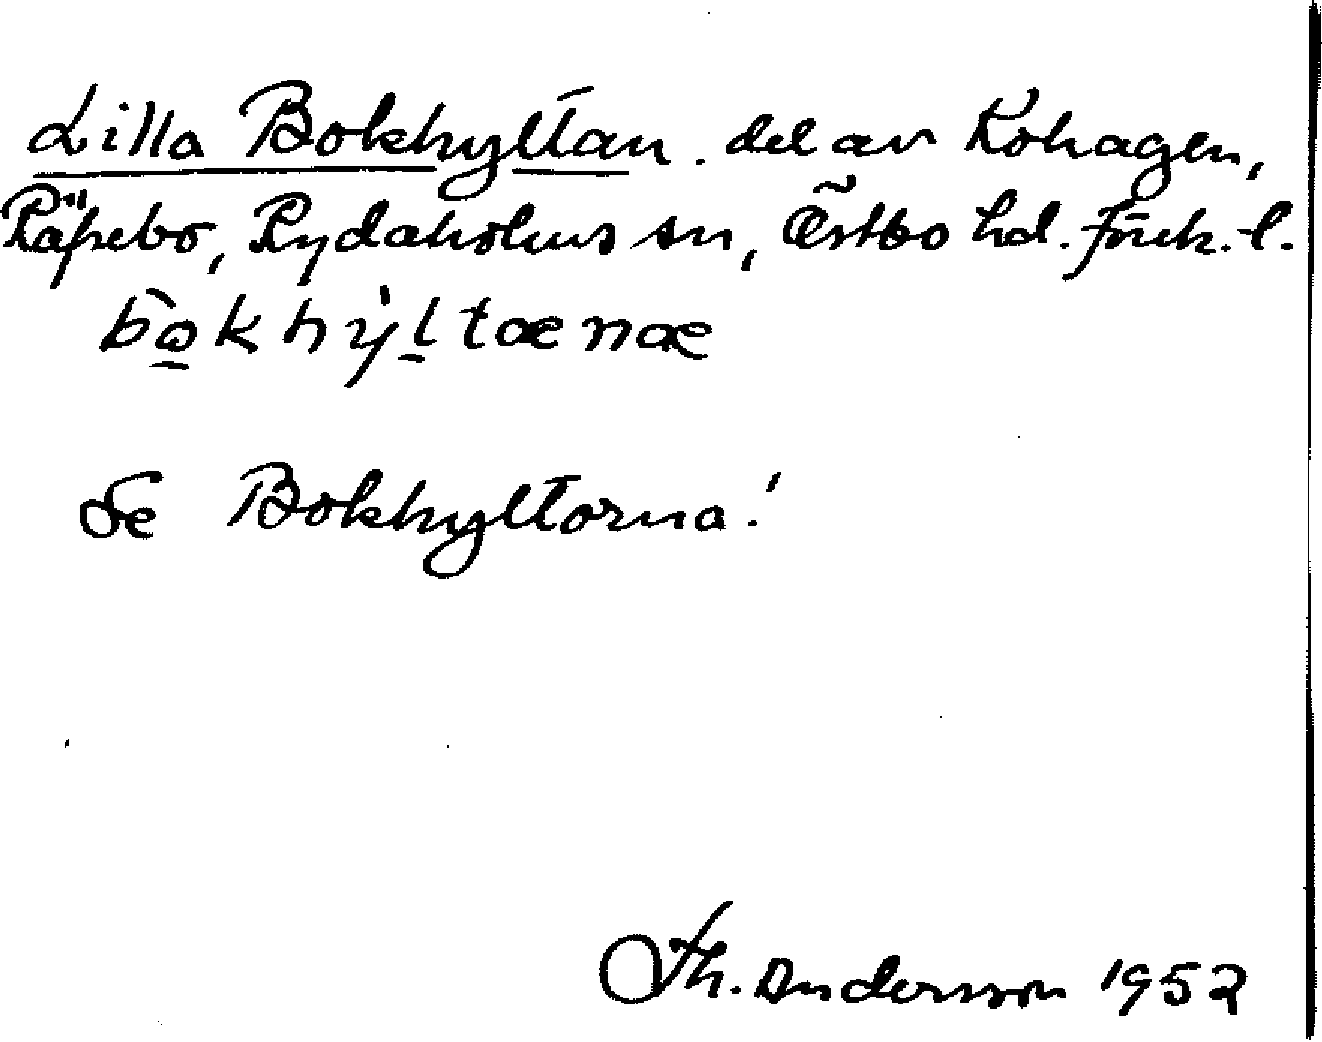 Lilla Bokhyltan. del av Kohagen,
Räpebo, Rydaholms sn, Östbo hd. Jönk. l.
bo̲khy̍l̲tænæ
Se Bokhyltorna!
Th. Andersson 1952